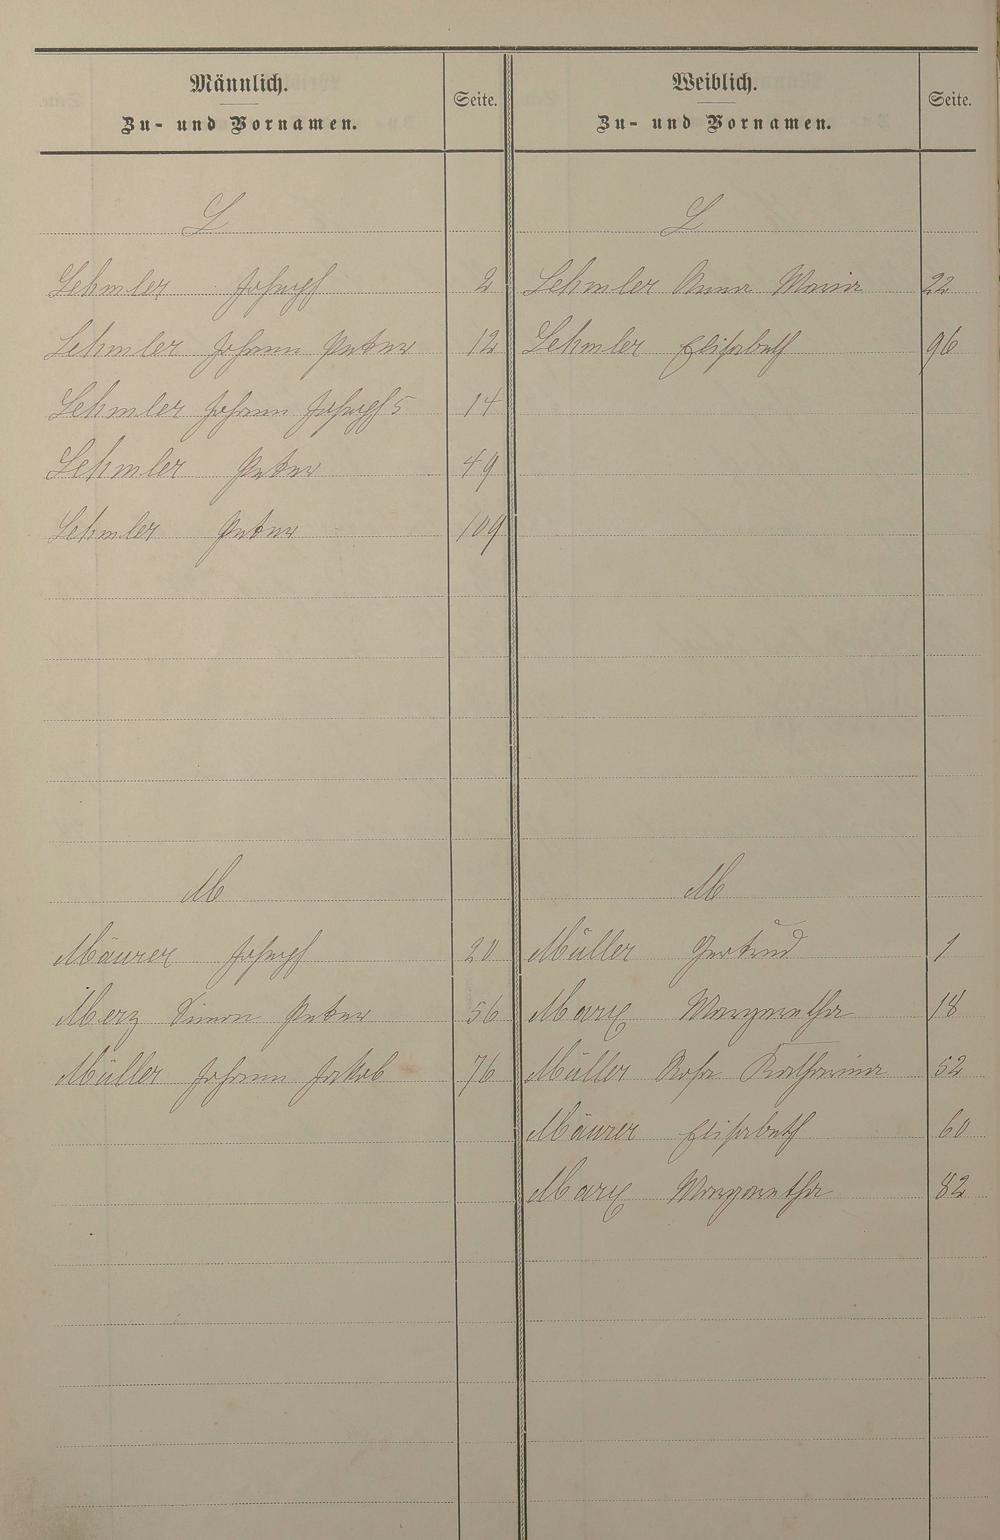 Männlich.
Zu- und Vornamen.
Seite.
Weiblich.
Zu- und Vornamen.
Seite.
L
L
Lehmler Joseph 2
Lehmler Anna Maria 22
Lehmler Johann Peter 12
Lehmler Elisabeth 96
Lehmler Johann Joseph 5 14
Lehmler Peter 49
Lehmler Peter 109
M
M
Mäurer Joseph 20
Müller Gertrud 1
Merz Simon Peter 56
Marx Margaretha 18
Müller Johann Jakob 76
Müller Rosa Katharina 52
Mäurer Elisabeth 60
Marx Margaretha 82